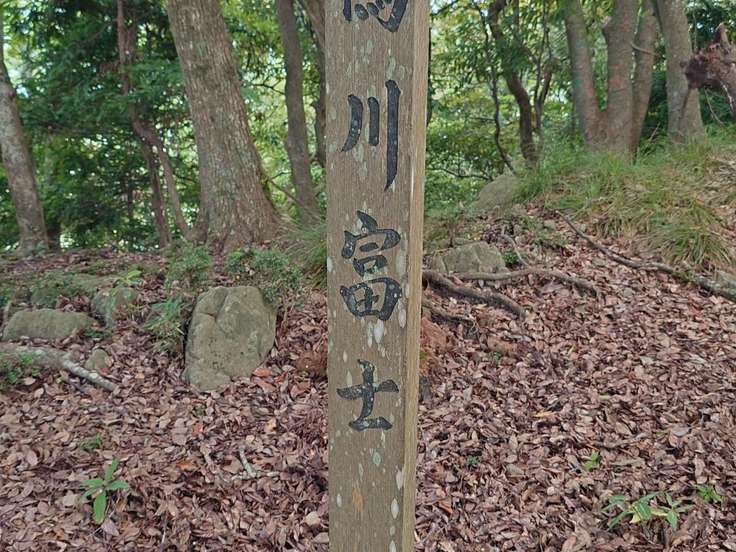 川富士